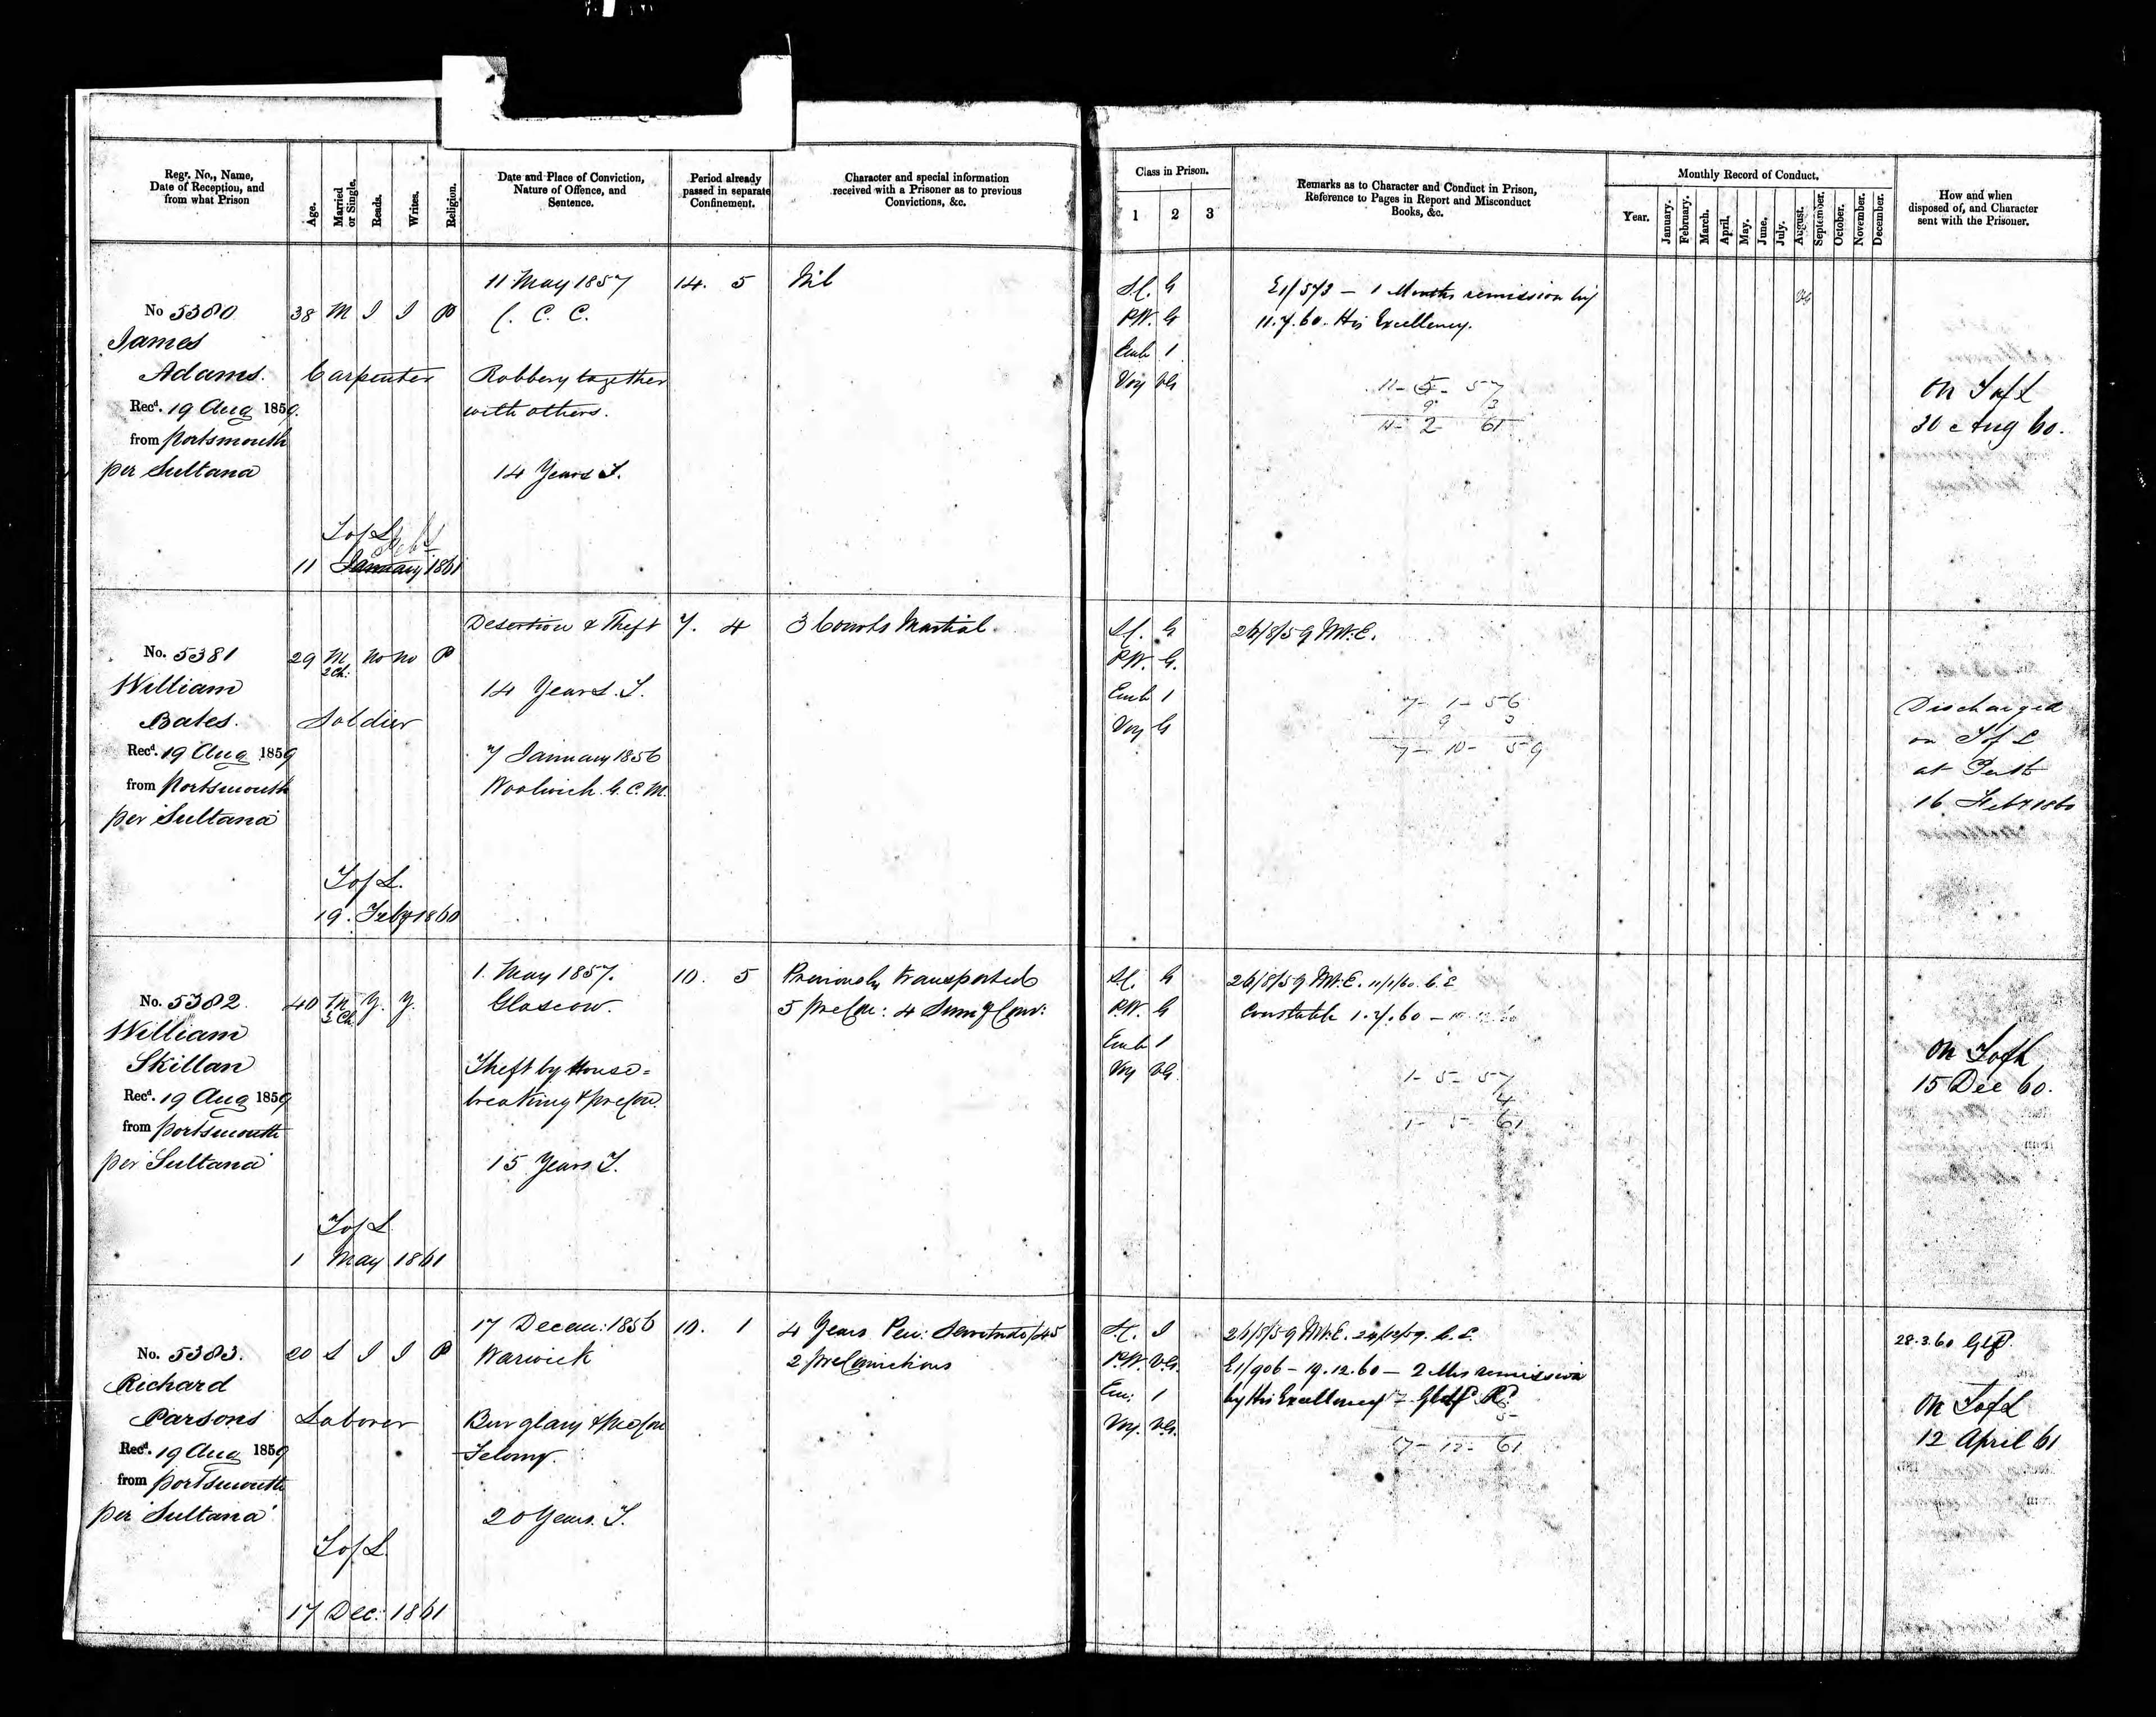 Regr. No., Name,
Date of Reception, and
from what Prison
Age.
Married
or Single.
Reads.
Writes.
Religion.
Date and Place of Conviction,
Nature of Offence, and
Sentence.
Period already
passed in separate
Confinement.
Character and special information
received with a Prisoner as to previous
Convictions, &c.
Class in Prison.
1 2 3
Remarks as to Character and Conduct in Prison,
Reference to Pages in Report and Misconduct
Books, &c.
Monthly Record of Conduct.
Year.
January.
February.
March.
April.
May.
June.
July.
August.
September.
October.
November.
December.
How and when
disposed of, and Character
sent with the Prisoner.
No 5380
James
Adams.
Recd. 19 Aug 1859.
from Portsmouth
per Sultana
38 M I I P
Carpenter
T of L
11 January 1861
11 May 1857
C. C. C.
Robbery together
with others.
14 Years T.
14. 5
Nil
G
P.W. G
Emb 1
Voy VG
E1/573 - 1 Months remission by
11.7.60. His Excellency.
11 - 5 - 57
9 3
11 - 2 61
VG
on T of L
30 Aug 60.
No. 5381
William
Bates.
Recd. 19 Aug 1859
from Portsmouth
per Sultana
29 M no no P
2 Ch:
Soldier
T of L.
19. Feby 1860
Desertion & Theft
14 Years. T.
7 January 1856
Woolwich. G. C. M.
7. 4
3 Courts Martial.
G
P.W. G.
Emb 1
Voy G
26/8/59 Mt. E.
7 - 1 - 56
9 3
7 - 10 - 59
Discharged
on T of L
at Perth
16 Feby 1860
No. 5382
William
Skillan
Recd. 19 Aug 1859
from Portsmouth
per Sultana
40 M Y. Y.
3 Ch
T of L
1 May 1861
1. May 1857.
Glascow.
Theft by House=
breaking & preCon.
15 Years T.
10. 5
Previously transported
5 preCon: 4 Summy Conv:
G
P.W. G
Emb 1
Voy VG.
26/8/59 Mt. E. 11/1/60. C. E
Constable 1.7.60 -
1 - 5 - 57
4
1 - 5 - 61
on T of L
15 Dec 60.
No. 5383.
Richard
Parsons
Recd. 19 Aug 1859
from Portsmouth
per Sultana
20 S I I P
Laborer
T of L
17 Dec: 1861
17 Decem: 1856
Warwick
Burglary & preCon
Felony.
20 Years. T.
10. 1
4 Years Pen: Servitude /45
2 preConvictions
I
P.W. V.G.
Em: 1
Voy. V.G.
26/8/59 Mt. E. 24/12/59. C. E.
E1/906 - 19.12.60 - 2 Mos remission
by His Excellency
5
17 - 12 - 61
28.3.60
on T of L
12 April 61